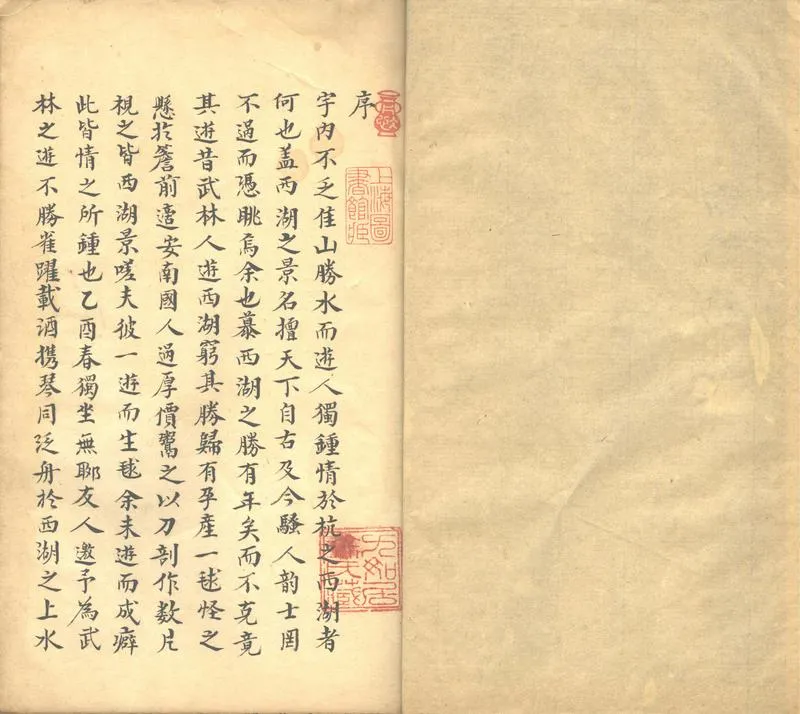 序
上海圖書館臧
宇内不乏佳山勝水而遊人獨鍾情於杭之西湖者
何也盖西湖之景名擅天下自古及今騷人韵士罔
不過而憑眺焉余也慕西湖之勝有年矣而不克竟
其遊昔武林人遊西湖窮其勝歸有孕産一毬怪之
懸於簷前適安南國人過厚價鬻之以刀剖作数片
視之皆西湖景嗟夫彼一遊而生毬余未遊而成癖
此皆情之所鍾也乙酉春獨坐無聊友人邀予為武
林之遊不勝雀躍載酒携琴同泛舟於西湖之上水